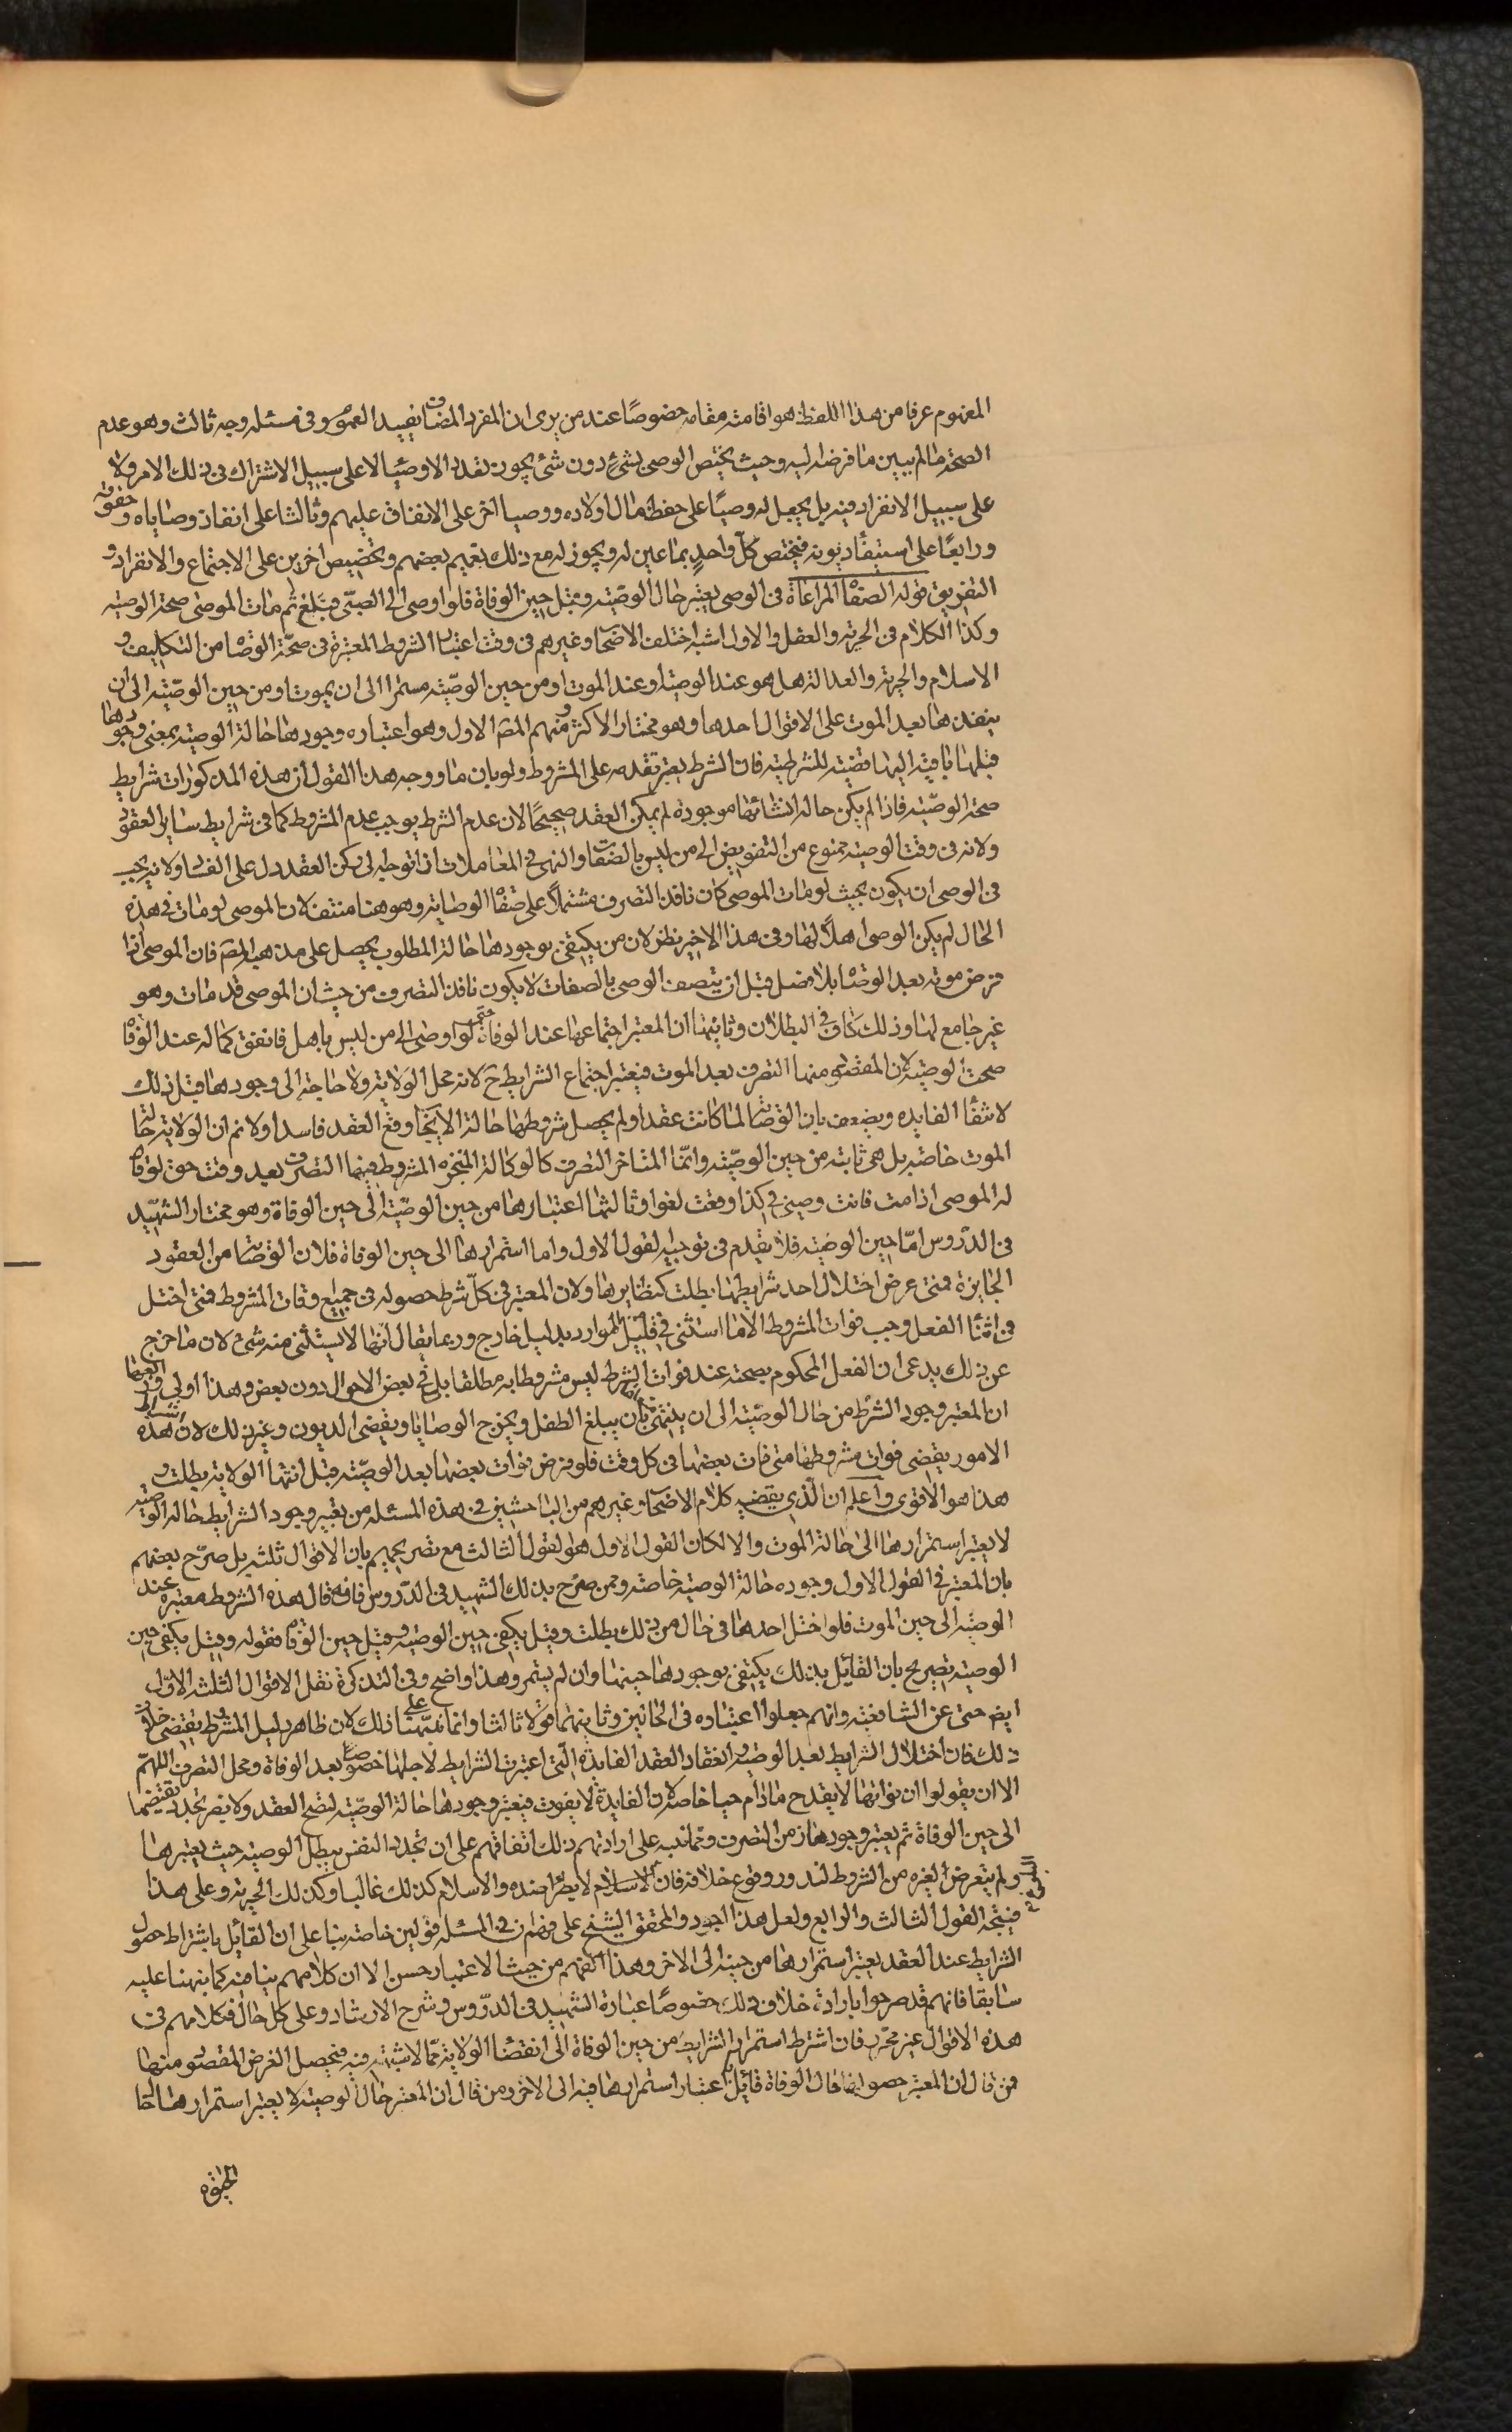 المفهوم عرفا من هذا اللفظ هو اقامته مقامه خصوصًا عند من يرى ان المفرد المضاف يفيد العموم وفى مسئله وجه ثالث وهو عدم
الصحة ما لم يبين ما فرضه اليه وحيث يختص الوصى بشئ دون شئ يجوز تعدد الاوصيا لا على سبيل الاشتراك فى ذلك الامر ولا
على سبيل الانفراد فيه بل يجعل له وصيًا على حفظ مال اولاده ووصيا اخر على الانفاق عليهم وثالثا على انفاذ وصاياه وحقوقه
ورابعًا على استيفاء ديونه فيختص كل واحدٍ بما عين له ويجوز له مع ذلك تعميم بعضهم وتخصيص اخرين على الاجتماع والانفراد و
التفريق قوله الصفات المراعاة فى الوصى يعتبر حال الوصيّه وقيل حين الوفاة فلو اوصى الى الصبىّ فبلغ ثم مات الموصى صحة الوصيّه
وكذا الكلام فى الحرية والعقل والاول اشبه اختلف الاصحاب وغيرهم فى وقت اعتبار الشروط المعتبرة فى صحّة الوصا من التكليف و
الاسلام والحرية والعدالة هل هو عند الوصية او عند الموت او من حين الوصيّه مستمرا الى ان يموت او من حين الوصيّه الى ان
ينفذها بعد الموت على الاقوال احدها وهو مختار الاكثر ومنهم المصَ الاول وهو اعتباره وجودها حالة الوصيه بمعنى وجودها
قبلها باقية اليها قضيّه للشرطيه فان الشرط يعتبر تقدمه على المشروط ولو بان ما ووجه هذا القول ان هذه المذكورات شرايط
صحة الوصيّه فاذا لم يكن حاله انشائها موجودة لم يكن العقد صحيحًا لان عدم الشرط يوجب عدم المشروط كما فى شرايط ساير العقود
ولانه فى وقت الوصيه ممنوع من التفويض الى من ليس بالصفات والنهى فى المعاملات اذا توجه الى ركن العقد دل على الفساد ولانه يجب
فى الوصى ان يكون بحيث لو مات الموصى كان نافذ التصرف مشتملاً على صفات الوصايه وهو هنا منتف لان الموصى لو مات فى هذه
الحال لم يكن الوصى اهلاً لها وفى هذا الاخير نظر لان من يكتفى بوجودها حالة المطلوب يحصل على مذهبه المصَ فان الموصى اذا
فرض موته بعد الوصا بلا فصل قبل ان يتصف الوصى بالصفات لا يكون نافذ التصرف من حيث ان الموصى قد مات وهو
غير جامع لها وذلك كاف فى البطلان وثانيها ان المعتبر اجتماعها عند الوفاة حتى لو اوصى الى من ليس باهل فاتفق كماله عند الوفاة
صحت الوصيّه لان المقصود منها التصرف بعد الموت فيعتبر اجتماع الشرايط حَ لانه محل الولاية ولا حاجة الى وجودها قبل ذلك
لانتفاء الفايده ويضعف بان الوصا لما كانت عقدا ولم يحصل شروطها حالة الايجاب وقع العقد فاسدا ولا نم ان الولاية حالة
الموت خاصه بل هى ثابته من حين الوصيّه وانّما المتاخر التصرف كالوكالة المنجزه المشروط فيها التصرف بعد وقت حق لو قال
له الموصى اذا مت فانت وصيى فى كذا وقعت لغوا وثالثها اعتبارها من حين الوصيّه الى حين الوفاة وهو مختار الشهيد
فى الدّروس امّا حين الوصيّه فلا تقدم فى توجيه القول الاول واما استمرارها الى حين الوفاة فلان الوصا من العقود
الجايزة فمتى عرض اختلال احد شرايطها بطلت كنظايرها ولان المعتبر فى كلّ شرط حصوله فى جميع وقات المشروط فمتى اختل
فى اثنا الفعل وجب فوات المشروط الا ما استثنى فى قليل الموارد بدليل خارج وربما يقال انها لا يستثنى منه شئ لان ما خرج
عن ذلك يدعى ان الفعل المحكوم بصحته عند فوات الشرط ليس مشروطا به مطلقا بل فى بعض الاحوال دون بعض وهذا اولى ورابعها
ان المعتبر وجود الشرط من حال الوصيّه الى ان ينتهى بان يبلغ الطفل ويخرج الوصايا ويقضى الديون وغير ذلك لان اشتراط هذه
الامور يقضى فوات مشروطها متى فات بعضها فى كل وقت فلو فرض فوات بعضها بعد الوصيّه قبل انتها الولاية بطلت و
هذا هو الاقوى واعلم ان الّذى يقضيه كلام الاصحاب وغيرهم من الباحثين فى هذه المسئله من يعتبر وجود الشرايط حالة الوصيه
لا يعتبر استمرارها الى حالة الموت والا لكان القول الاول هو القول الثالث مع تصريحهم بان الاقوال ثلثه بل صرّح بعضهم
بان المعتبر فى القول الاول وجوده حالة الوصيه خاصة وممن صرّح بذلك الشهيد فى الدّروس فانه قال هذه الشروط معتبره عند
الوصيّه الى حين الموت فلو اختل احدها فى حال من ذلك بطلت وقيل يكفى حين الوصيّه وقيل حين الوفاة فقوله وقيل يكفى حين
الوصيه تصريح بان القائل بذلك يكتفى بوجودها حينها وان لم يستمر وهذا واضح وفى التذكرة نقل الاقوال الثلثه الاوّل
ايضَ حتى عن الشافعيّه وانهم جعلوا اعتباره فى الحالين وثانيهما قولا ثالثا وانما نبّهنا على ذلك لان ظاهر دليل المشروط يقتضى خلاف
ذلك فان اختلال الشرايط بعد الوصيّه وانعقاد العقد الفايدة الّتى اعتبرت الشرايط لاجلها خصوصا بعد الوفاة ومحل التصرف اللهمّ
الا ان يقولوا ان فواتها لا يقدح مادام حيا خاصه لان الفايدة لا يفوت فيعتبر وجودها حالة الوصيّه لتصح العقد ولا يضر تجدد نقيضها
الى حين الوفاة ثم يعتبر وجودها زمن التصرف ومما نبه على ارادتهم ذلك اتفاقهم على ان تجدد الفسق يبطل الوصيه حيث يعتبرها
ولم يتعرض لغيره من الشروط لندور وقوع خلافه فان الاسلام لا يطرا ضده والاسلام كذلك غالبا وكذلك الحرية وعلى هذا
فيتجه القول الثالث والرابع ولعل هذا اجود والمحقق الشيخ على فهم ان فى المسئله قولين خاصه بنا على ان القائل باشتراط حصول
الشرايط عند العقد يعتبر استمرارها من حينه الى الاخر وهذا الفهم من حيث الاعتبار حسن الا ان كلامهم ينافيه كما نبهنا عليه
سابقا فانهم قد صرحوا بارادة خلاف ذلك خصوصًا عبارة الشهيد فى الدروس وشرح الارشاد وعلى كل حال فكلامهم فى
هذه الاقوال غير محرّر فان اشترط استمرار الشرايط من حين الوفاة الى انقضا الولاية ممّا لا شبهة فيه فيحصل الغرض المقصود منها
فمن قال ان المعتبر حصولها حال الوفاة قائل باعتبار استمرارها فيه الى الاخر ومن قال ان المعتبر حال الوصيّه لا يعتبر استمرارها لحا